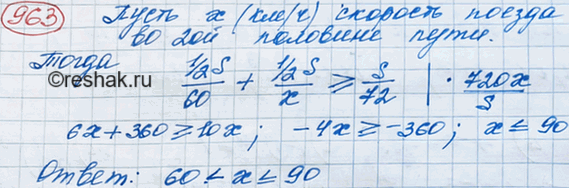 963 Пусть x (км/ч) скорость поезда
во 2ой половине пути.
Тогда
©reshak.ru
½S/60 + ½S/x ≥ S/72 | · 720x/S
6x+360 ≥ 10x; -4x ≥ -360; x ≤ 90
Ответ: 60 ≤ x ≤ 90